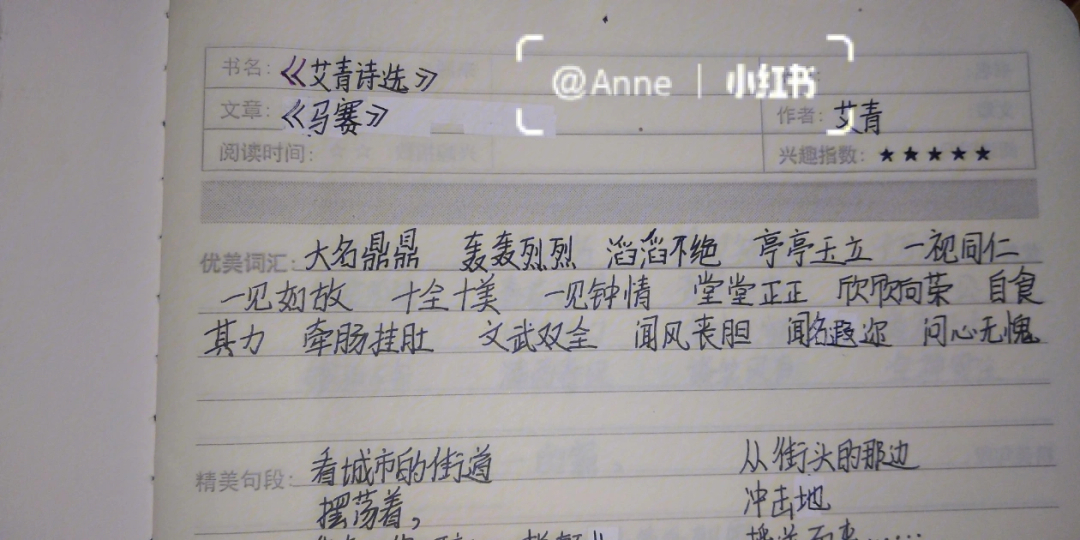 @Anne | 小红书
书名：《艾青诗选》
文章：《马赛》 作者：艾青
阅读时间： 兴趣指数：★★★★★
优美词汇：大名鼎鼎 轰轰烈烈 滔滔不绝 亭亭玉立 一视同仁
一见如故 十全十美 一见钟情 堂堂正正 欣欣向荣 自食
其力 牵肠挂肚 文武双全 闻风丧胆 闻名遐迩 问心无愧
精美句段：看城市的街道
摆荡着，
从街头的那边
冲击地